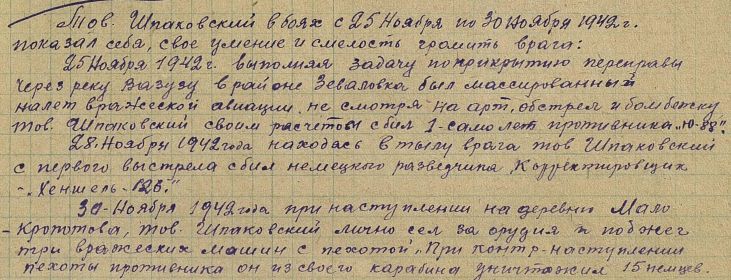 Тов. Шпаковский в боях с 25 Ноября по 30 Ноября 1942 г.
показал себя, свое умение и смелость громить врага:
25 Ноября 1942 г. выполняя задачу по прикрытию переправы
через реку Вазузу в районе Зеваловка был массированный
налет вражеской авиации, не смотря на арт, обстрел и бомбежку
тов. Шпаковский своим расчетом сбил 1-самолет противника „Ю-88".
28 Ноября 1942 года находясь в тылу врага тов Шпаковский
с первого выстрела сбил немецкого разведчика, Корректировщик
- „Хеншель-126."
30-Ноября 1942 года при наступлении на деревню Мало
- Кропотова, тов. Шпаковский лично сел за орудия и поджег
три вражеских машин с пехотой, При контр-наступлении
пехоты противника он из своего карабина уничтажил 15 немцев.